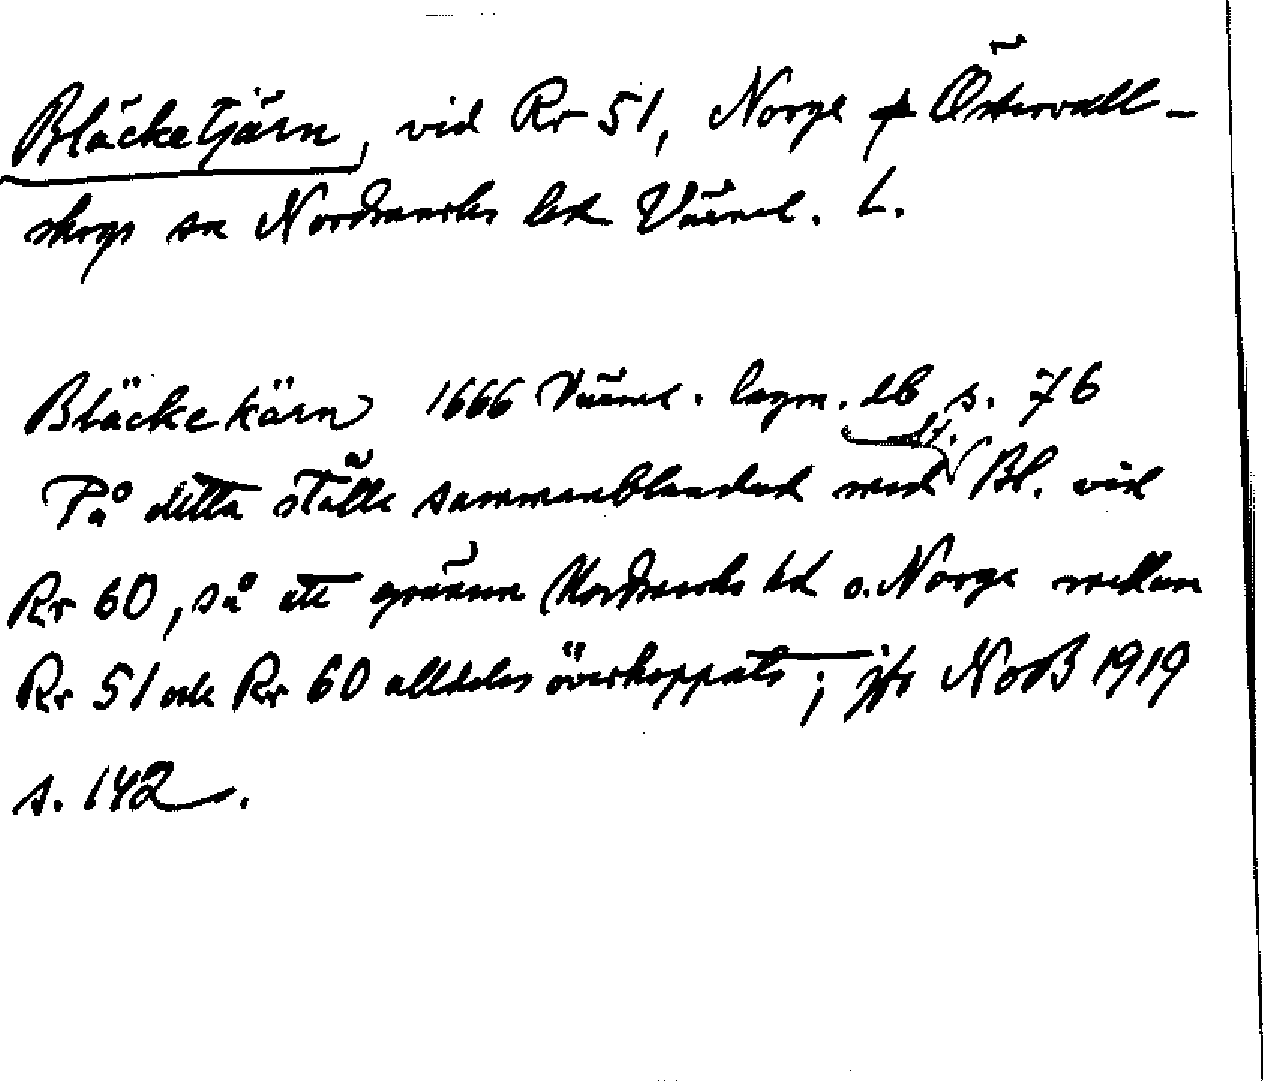 Bläcketjärn, vid Rr 51, Norge f Östervall-
skogs sn Nordmarks hd Värml. L.
Bläckekärn 1666 Värml. lagm. db s. 76
På detta ställe sammanblandad med Bl. vid
Rr 60, så att gränsen Nordmarks hd o. Norge mellan
Rr 51 och Rr 60 alldeles överhoppats; jfr NoB 1919
s. 142.